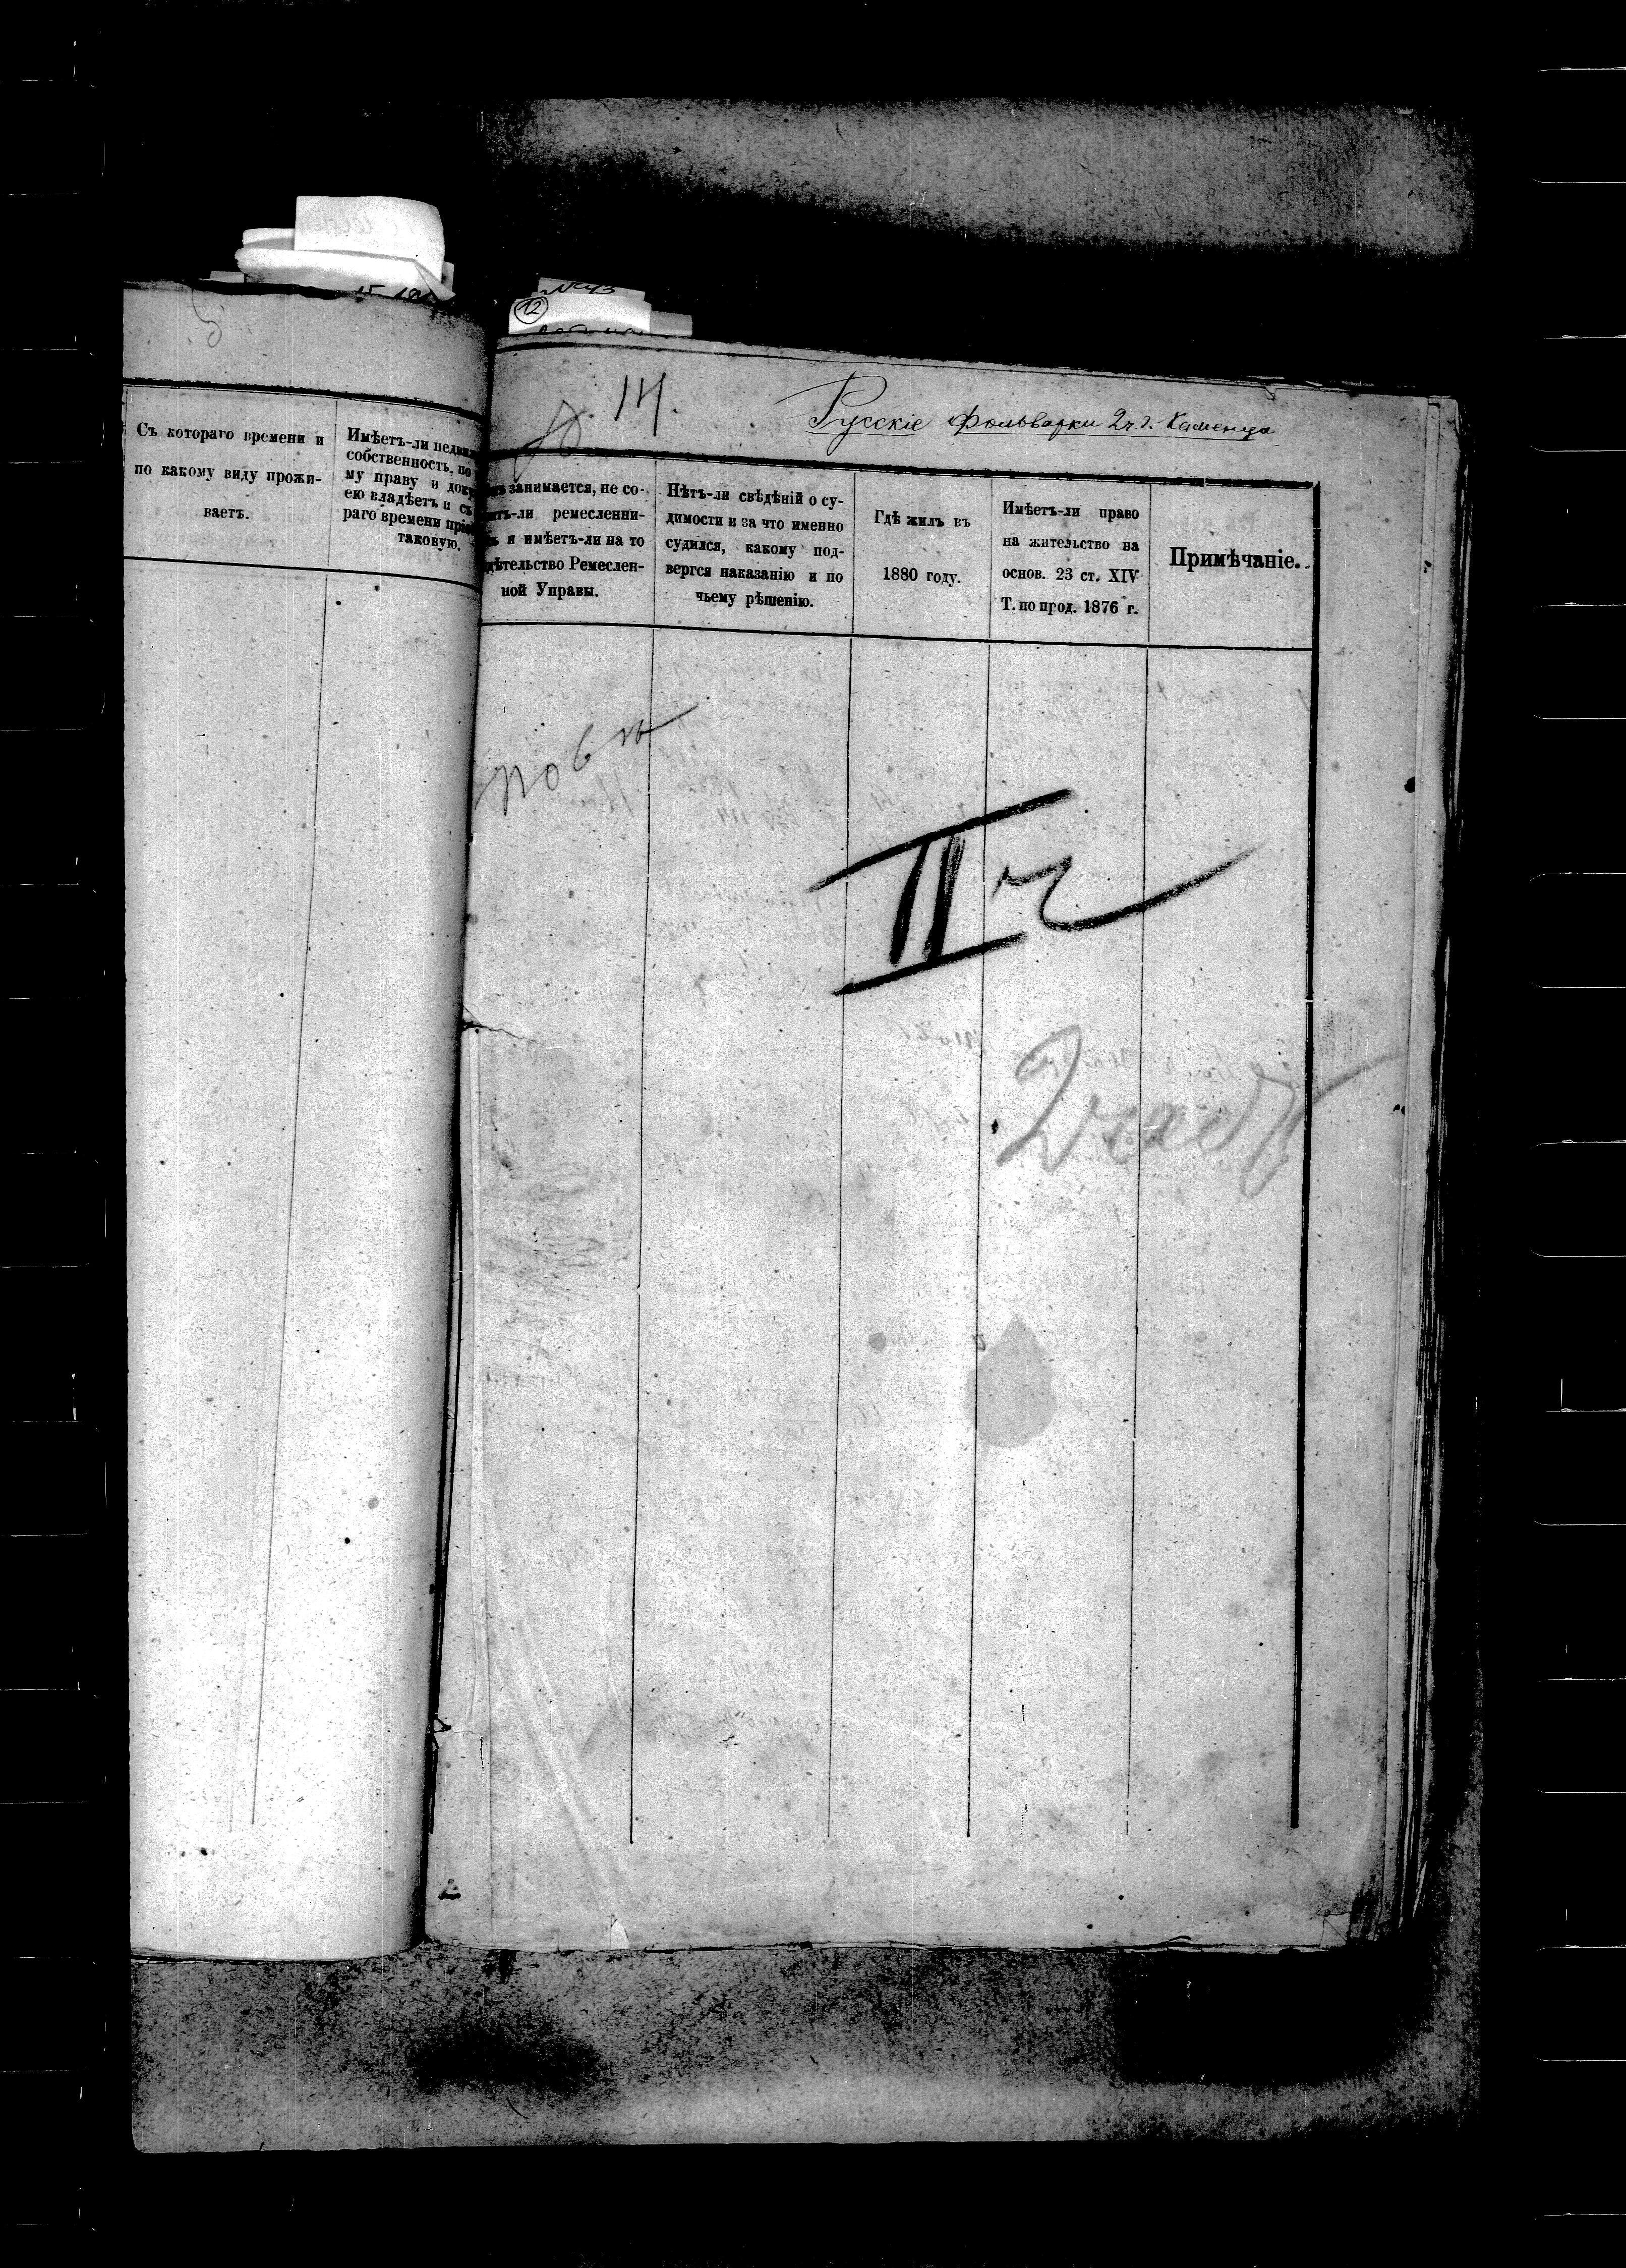 Съ котораго времени и
по какому виду прожи-
ваетъ.
Имѣетъ-ли недви
собственность, по
му праву и доку
ею владѣетъ и съ
раго времени прі
таковую.
№43
12
14.
Русскіе Фольварки 2 ч. г. Каменца
занимается, не со-
итъ-ли ремесленни-
и имѣетъ-ли на то
дѣтельство Ремеслен-
ной Управы.
Нѣтъ-ли свѣдѣній о су-
димости и за что именно
судился, какому под-
вергся наказанію и по
чьему рѣшенію.
Гдѣ жилъ въ
1880 году.
Имѣетъ-ли право
на жительство на
основ. 23 ст. XIV
Т. по прод. 1876 г.
Примѣчаніе.
II ч
2 част